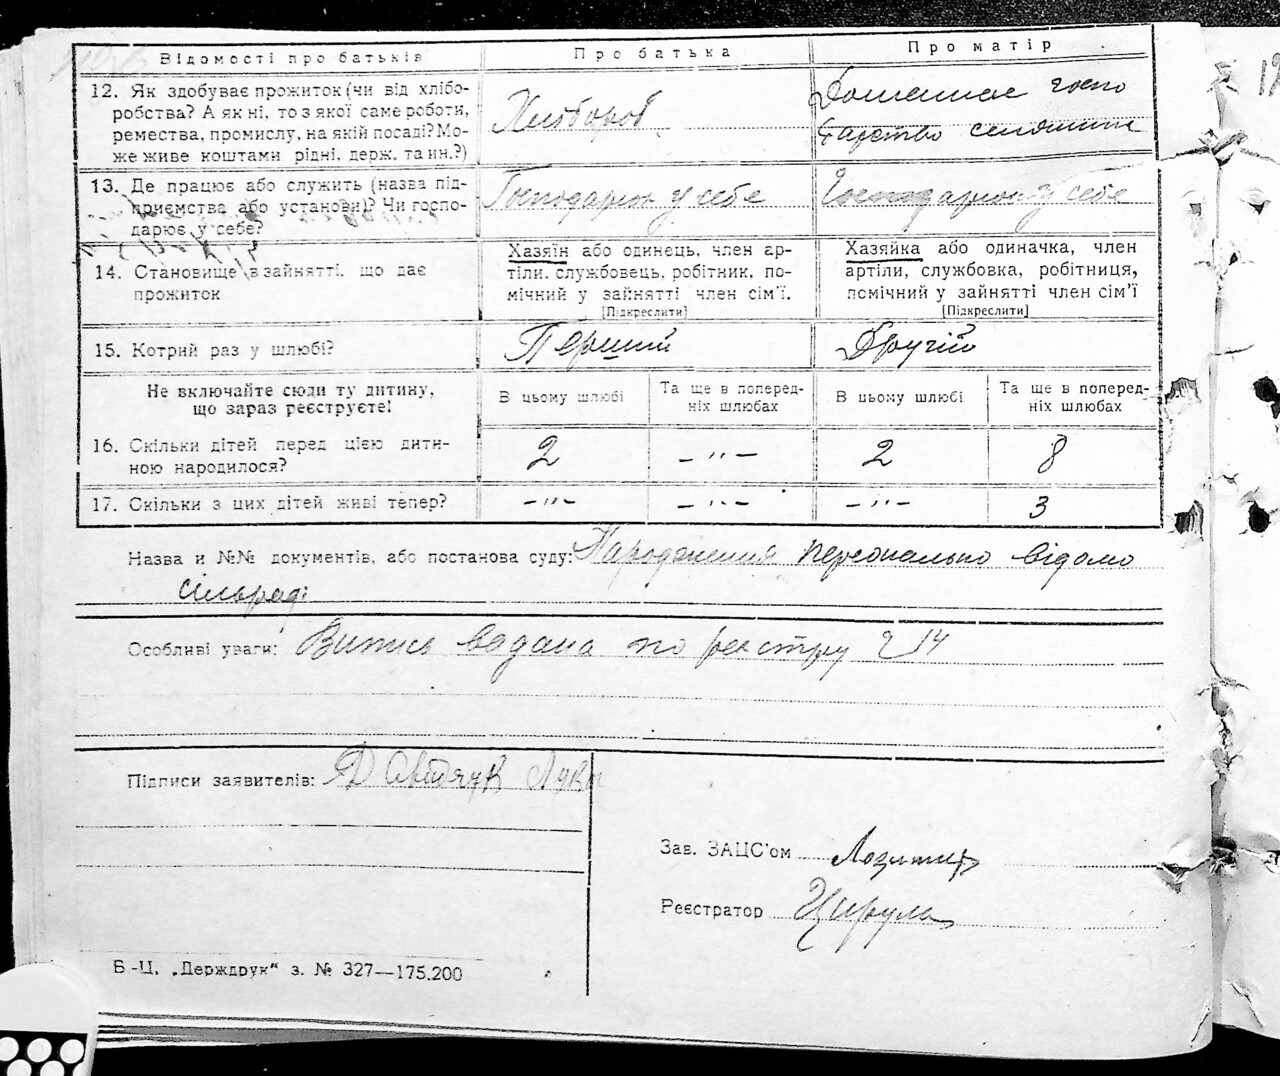 Відомості про батьків
Про батька
Про матір
12. Як здобуває прожиток (чи від хлібо-
робства? А як ні, то з якої саме роботи,
ремества, промислу, на якій посаді? Мо-
же живе коштами рідні, держ. та ин.?)
Хлібороб
Домашнє госпо
дарство селянина
13. Де працює або служить (назва під-
приємства або установи)? Чи госпо-
дарює у себе?
Господарює у себе
Господарює у себе
14. Становище в зайнятті, що дає
прожиток
Хазяїн або одинець, член ар-
тіли, службовець, робітник, по-
мічний у зайнятті член сім'ї.
[Підкреслити]
Хазяйка або одиначка, член
артіли, службовка, робітниця,
помічний у зайнятті член сім'ї
[Підкреслити]
15. Котрий раз у шлюбі?
Перший
Другій
Не включайте сюди ту дитину,
що зараз реєструєте!
В цьому шлюбі
Та ще в поперед-
ніх шлюбах
В цьому шлюбі
Та ще в поперед-
ніх шлюбах
16. Скільки дітей перед цією дити-
ною народилося?
2
– " –
2
8
17. Скільки з цих дітей живі тепер?
– " –
– " –
– " –
3
Назва и №№ документів, або постанова суду: Народження персонально відомо
сільраді
Особливі уваги: Витись видана по реєстру 2 14
Підписи заявителів:
Зав. ЗАЦС'ом
Реєстратор Цирула
Б.-Ц. „Держдрук" з. № 327—175.200